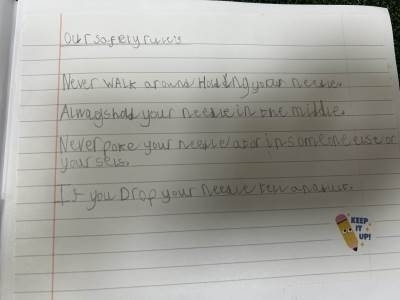 Our safety rules
Never walk around Holding your needle.
Always hold your needle in the middle.
Never poke your needle at or in someone else or
your self.
If you Drop your needle tell an adult.
KEEP
IT
UP!